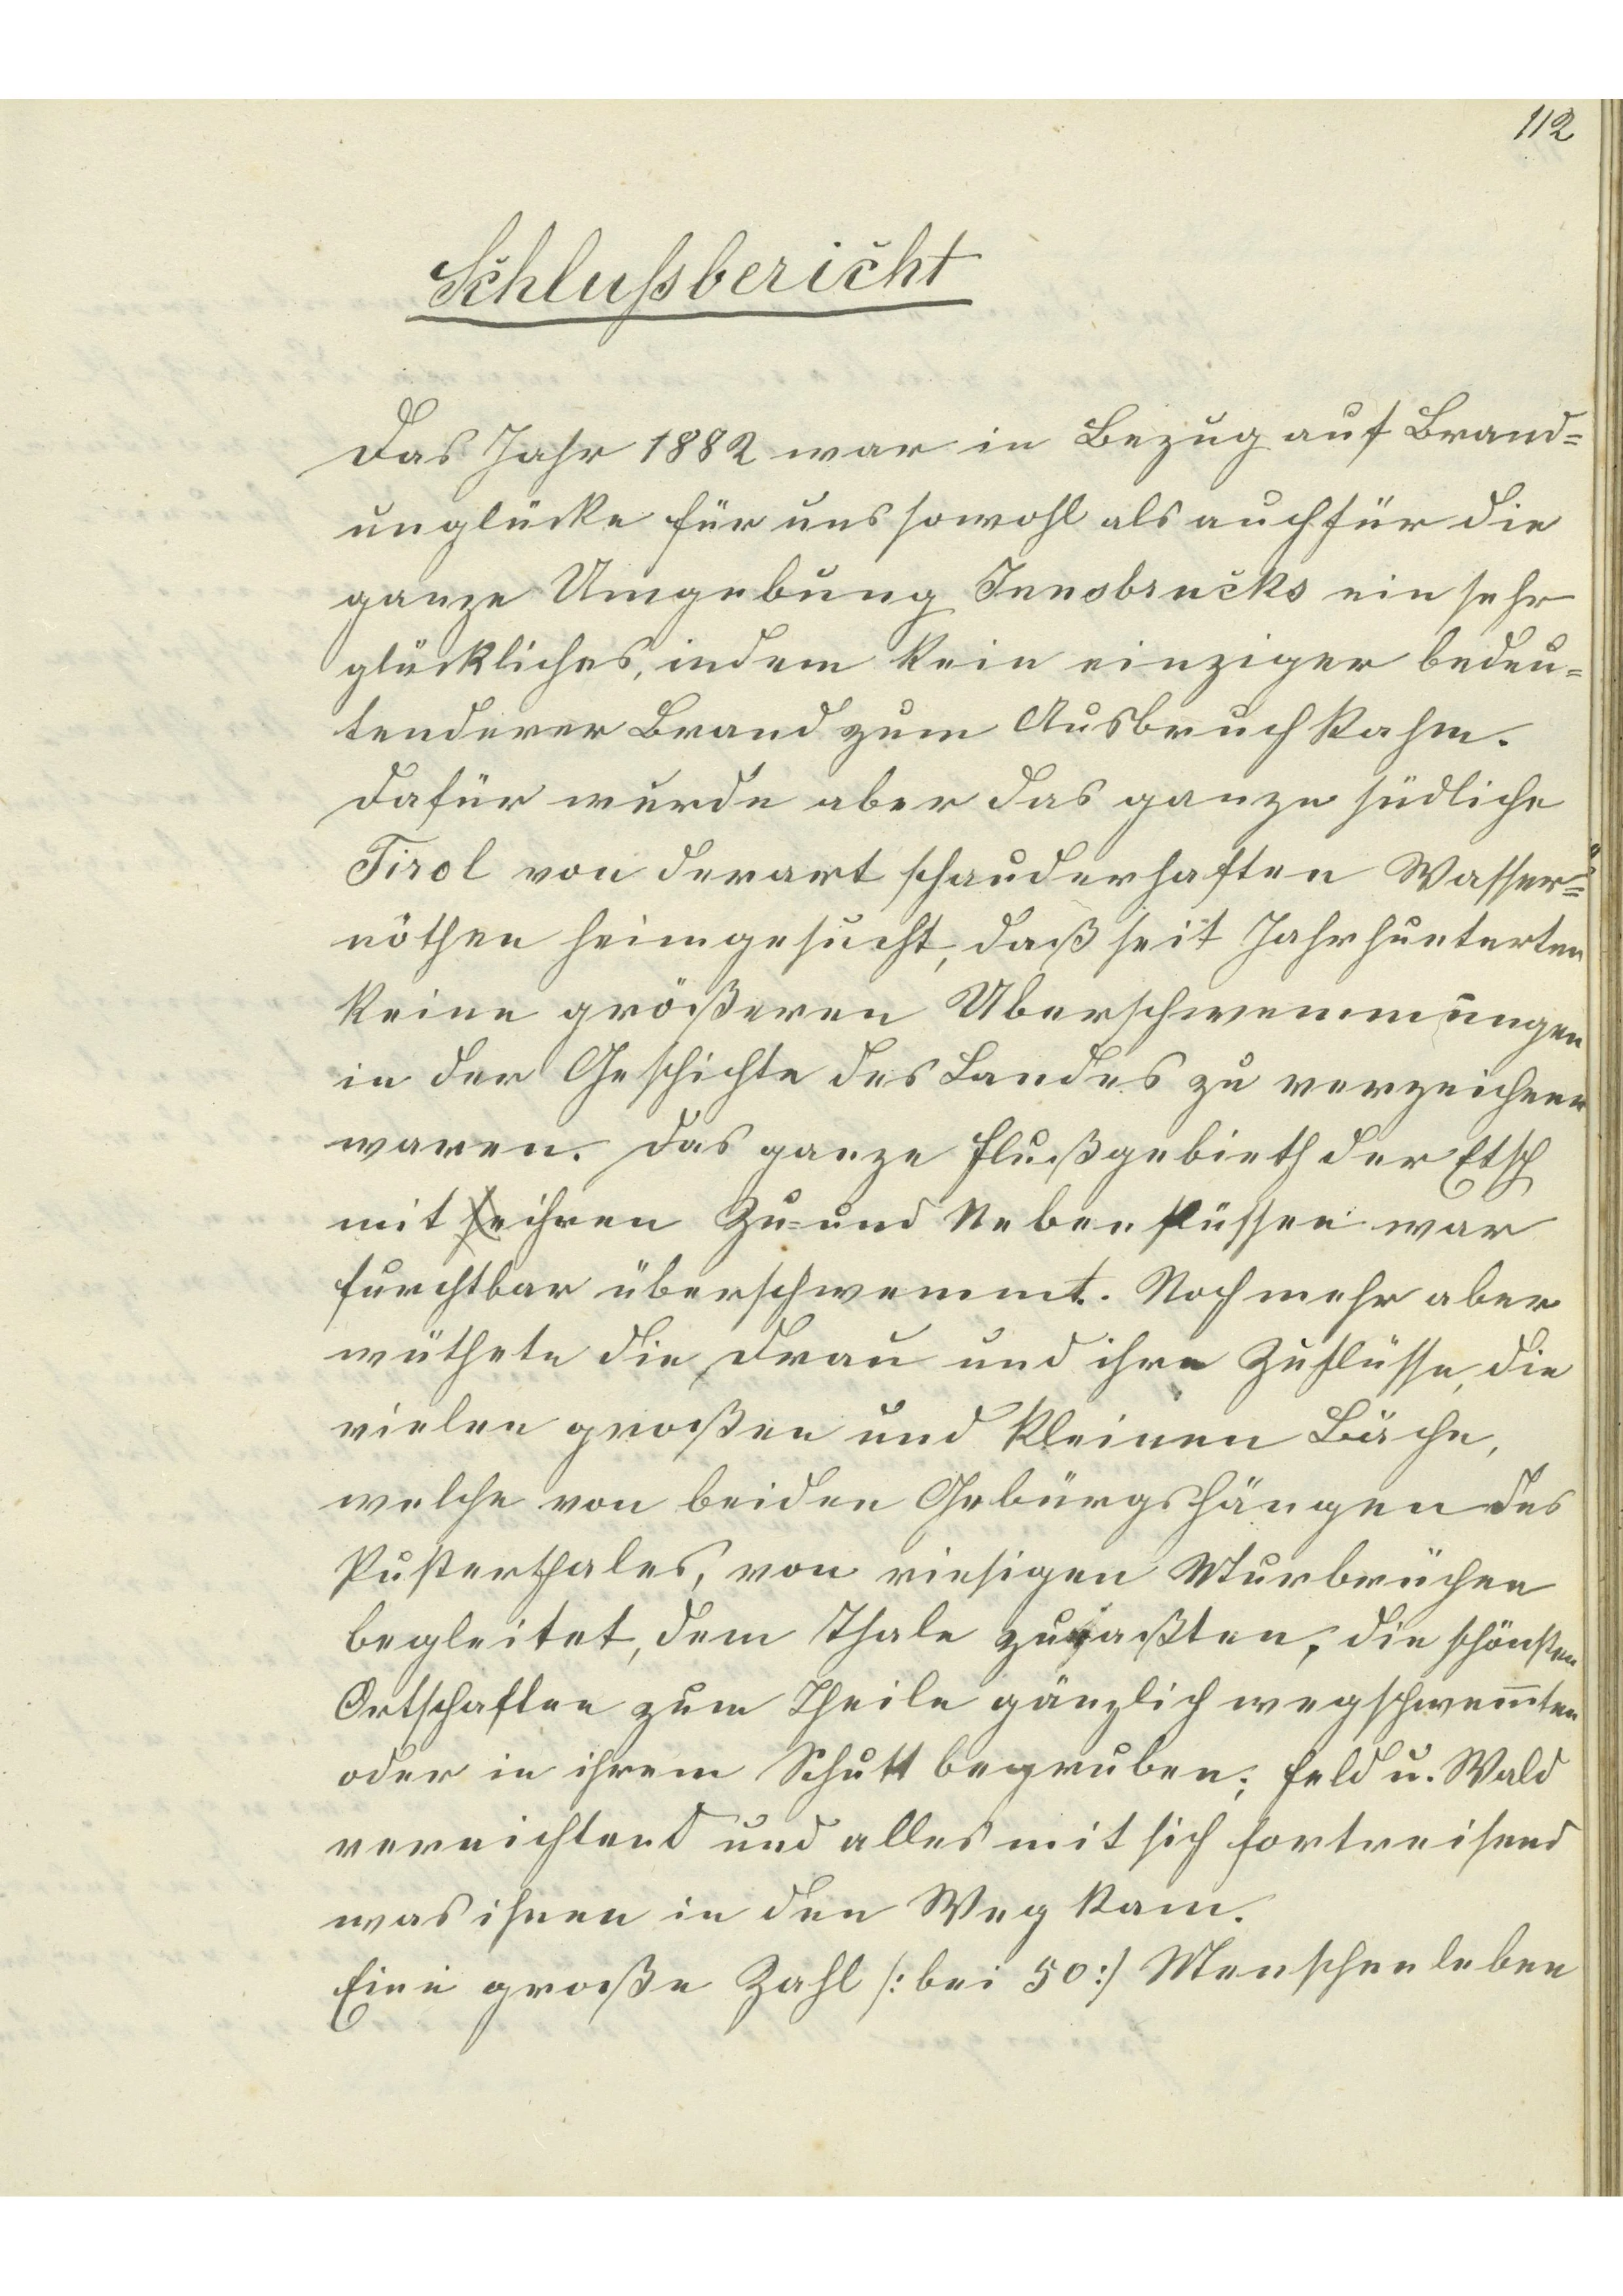 112
Schlußbericht
Das Jahr 1882 war in Bezug auf Brand=
unglücke für uns sowohl als auch für die
ganze Umgebung Innsbrucks ein sehr
glückliches, indem kein einziger bedeu=
tenderer Brand zum Ausbruch kahm.
Dafür wurde aber das ganze südliche
Tirol von derart schauderhaften Wasser=
nöthen heimgesucht, daß seit Jahrhunterten
keine größeren Uberschwemmungen
in der Geschichte des Landes zu verzeichnen
waren. Das ganze Flußgebieth der Etsch
mit ihren Zu= und Nebenflüssen war
furchtbar überschwemmt. Noch mehr aber
wüthete die Drau und ihre Zuflüsse, die
vielen großen und kleinen Bäche,
welche von beiden Gebürgshängen des
Pusterthales, von riesigen Murbrüchen
begleitet, dem Thale zuraßten, die schönsten
Ortschaften zum Theile gänzlich wegschwem̅ten
oder in ihrem Schutt begruben; Feld u. Wald
vernichtend und alles mit sich fortreisend
was ihnen in den Weg kam.
Eine große Zahl /: bei 50 :/ Menschenleben